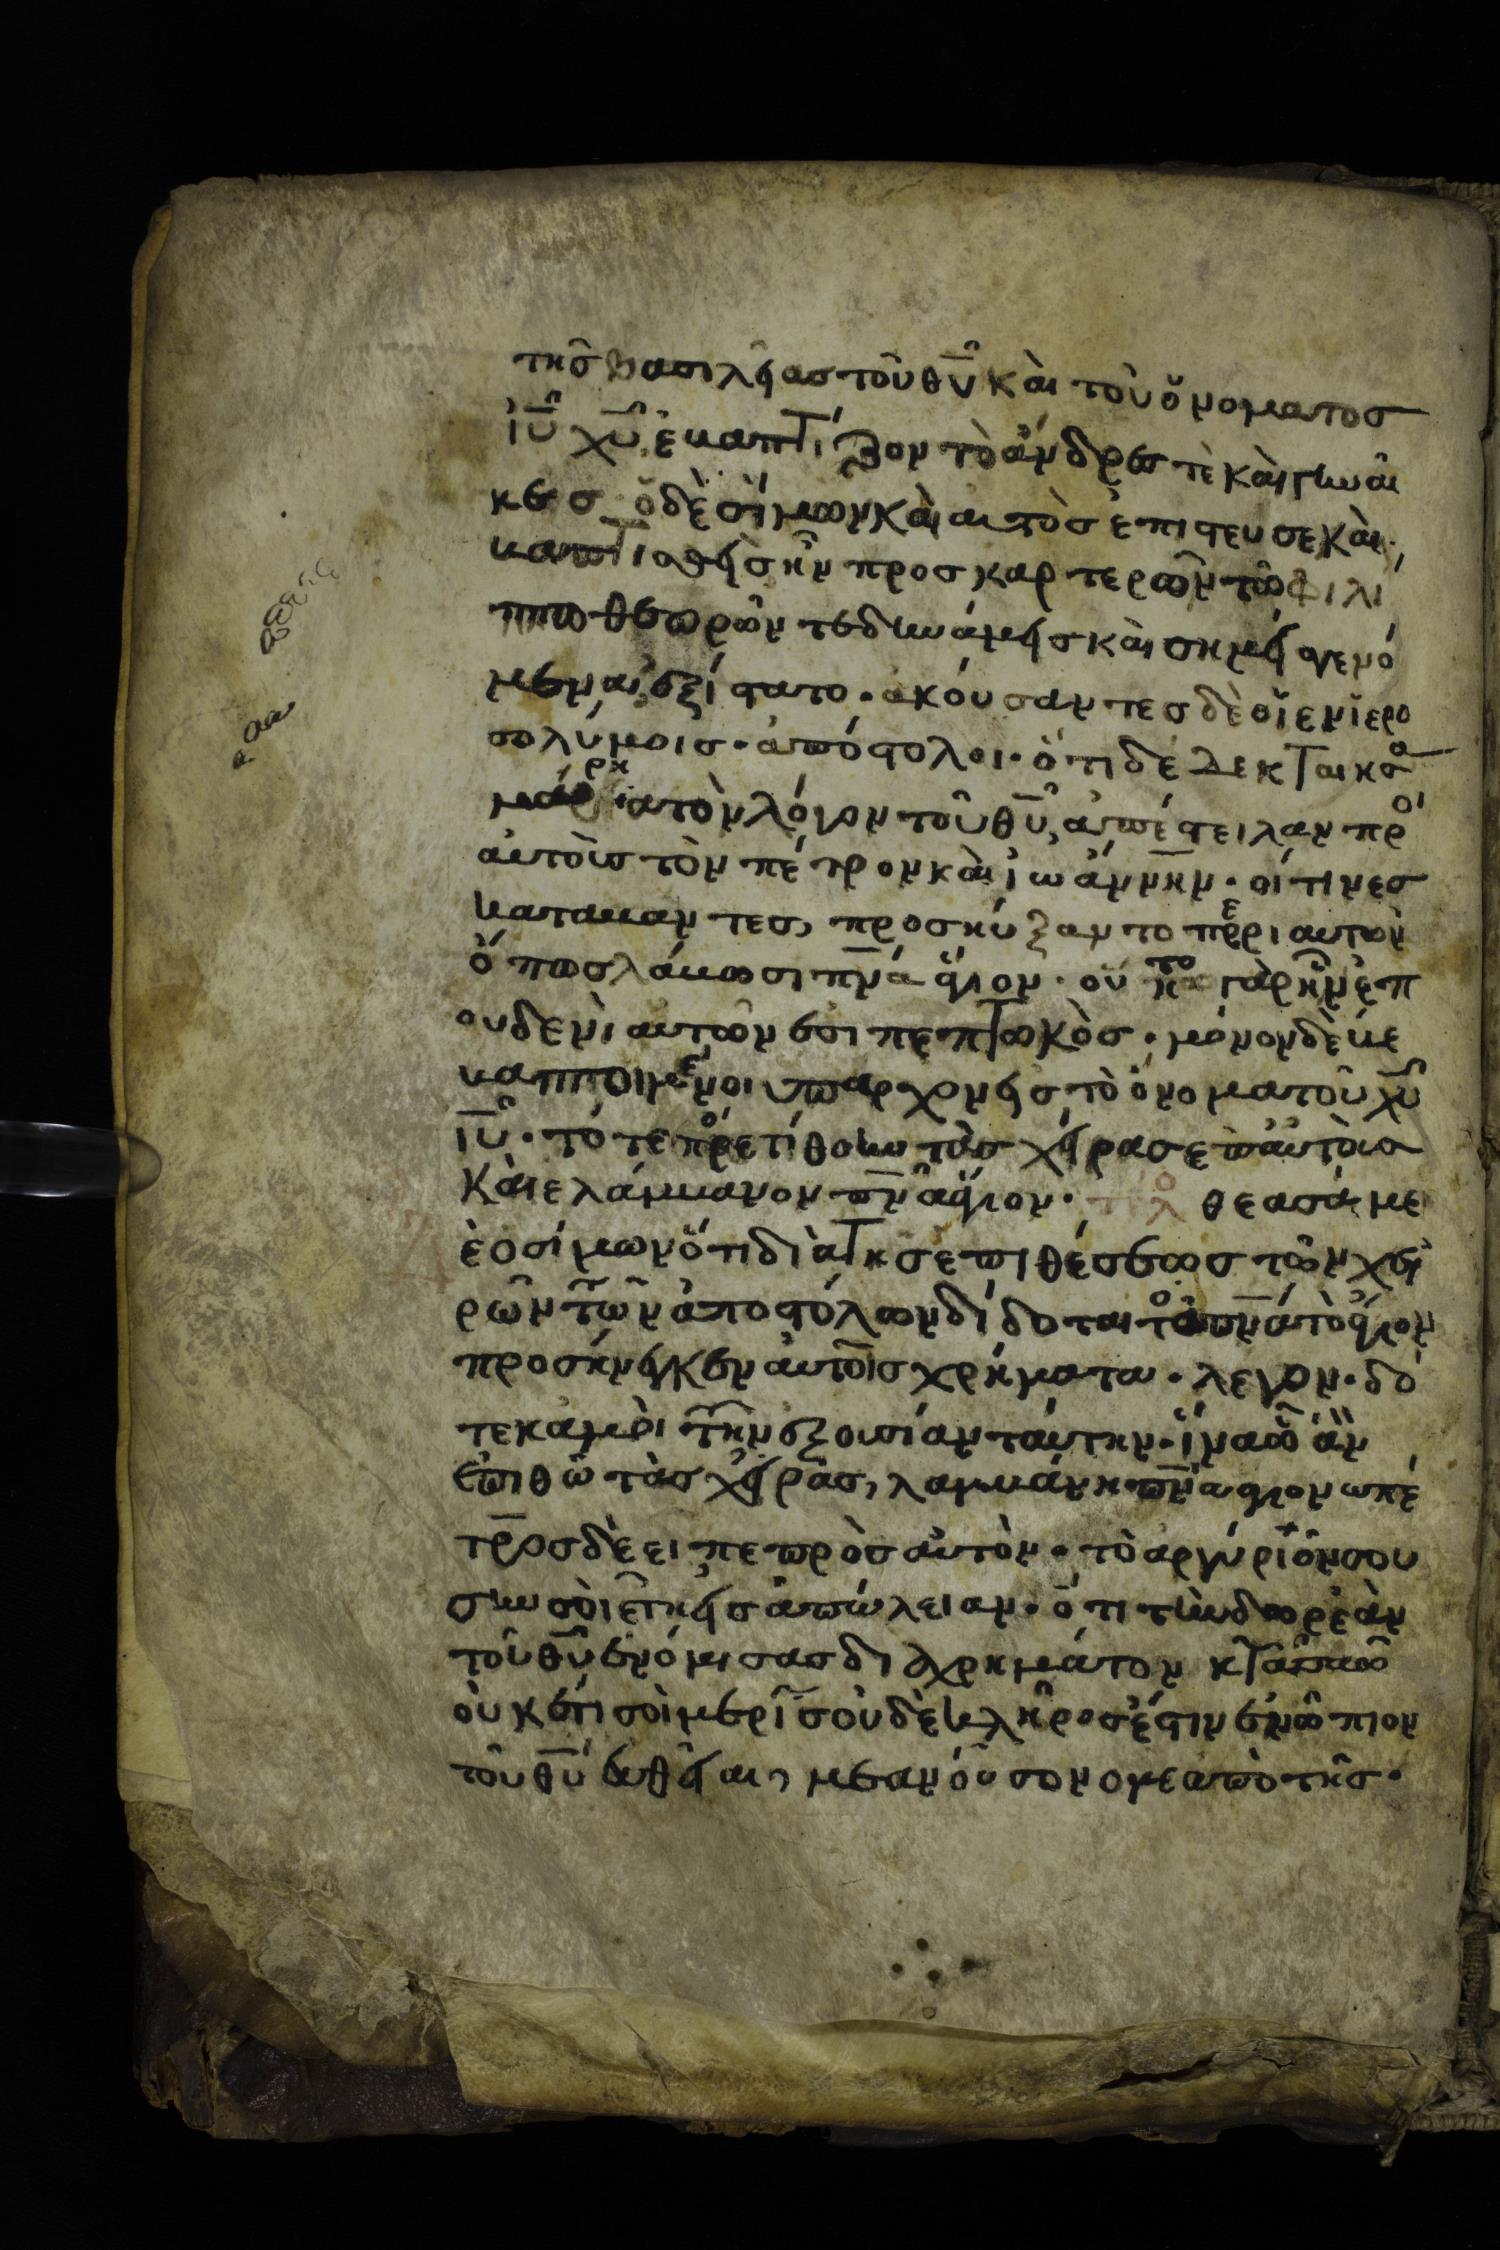 τῆς βασιλείας τοῦ θῦ καὶ τοῦ ὀνόματος
ἰῦ χῦ ἐβαπτίζοντο ἄνδρες τὲ καὶ γυναῖ
κες ὁ δὲ σίμων καὶ αυτὸς ἐπιστευσε καὶ
βαπτισθεὶς ἦν προσκαρτερῶν τῶ φιλι
ππω θεωρῶν τε δυνάμεις καὶ σημεῖα γενό
μενα ἐξίστατο · ἀκούσαντες δὲ οἱ εν ἱερο
σολύμοις · ἀπόστολοι · ὅτι δέδεκται η σα
μάρεια τὸν λόγον τοῦ θῦ, ἀπέστειλαν πρὸ
αὐτοὺς τὸν πέτρον καὶ ἰωάννην · οἵτινες
καταβαντες, προσηύξαντο περι αυτῶν
ὅπως λάβωσι πνα ἅγιον · οὔπω γὰρ ἦν ἐπ
ουδενὶ αυτῶν επιπεπτωκὸς · μόνον δὲ βε
βαπτισμένοι υπαρχον εἰς τὸ ὄνομα τοῦ χῦ
ἰῦ · τότε ἐπετίθουν τὰς χεῖρας επ αὐτοὺς
καὶ ελάμβανον πνα ἅγιον · τελ θεασάμε
ὁ σίμων ὅτι διὰ τῆς ἐπιθέσεως τῶν χει
ρῶν τῶν ἀποστόλων δίδοται τὸ πνα τὸ ἅγιον
προσήνεγκεν αὐτοῖς χρήματα · λεγον · δό
τε κἀμοὶ τὴν εξουσίαν ταύτην · ἵνα ᾧ ἂν
ἐπιθῶ τὰς χεῖρας, λαμβάνη πνα αγιον ω πέ
τρος δὲ ειπε πρὸς αὐτὸν · τὸ αργύριόν σου
σὺν σοὶ εἴη εἰς ἀπώλειαν · ὅτι τὴν δωρεὰν
τοῦ θῦ ενόμισας διὰ χρημάτον κτᾶσθαι
οὐκ ἔστι σοὶ μερὶς οὐδὲ κλῆρος ἔστιν ενώπιον
τοῦ θῦ ευθεῖαι, μετανόησον ουν ἀπὸ τῆς ·